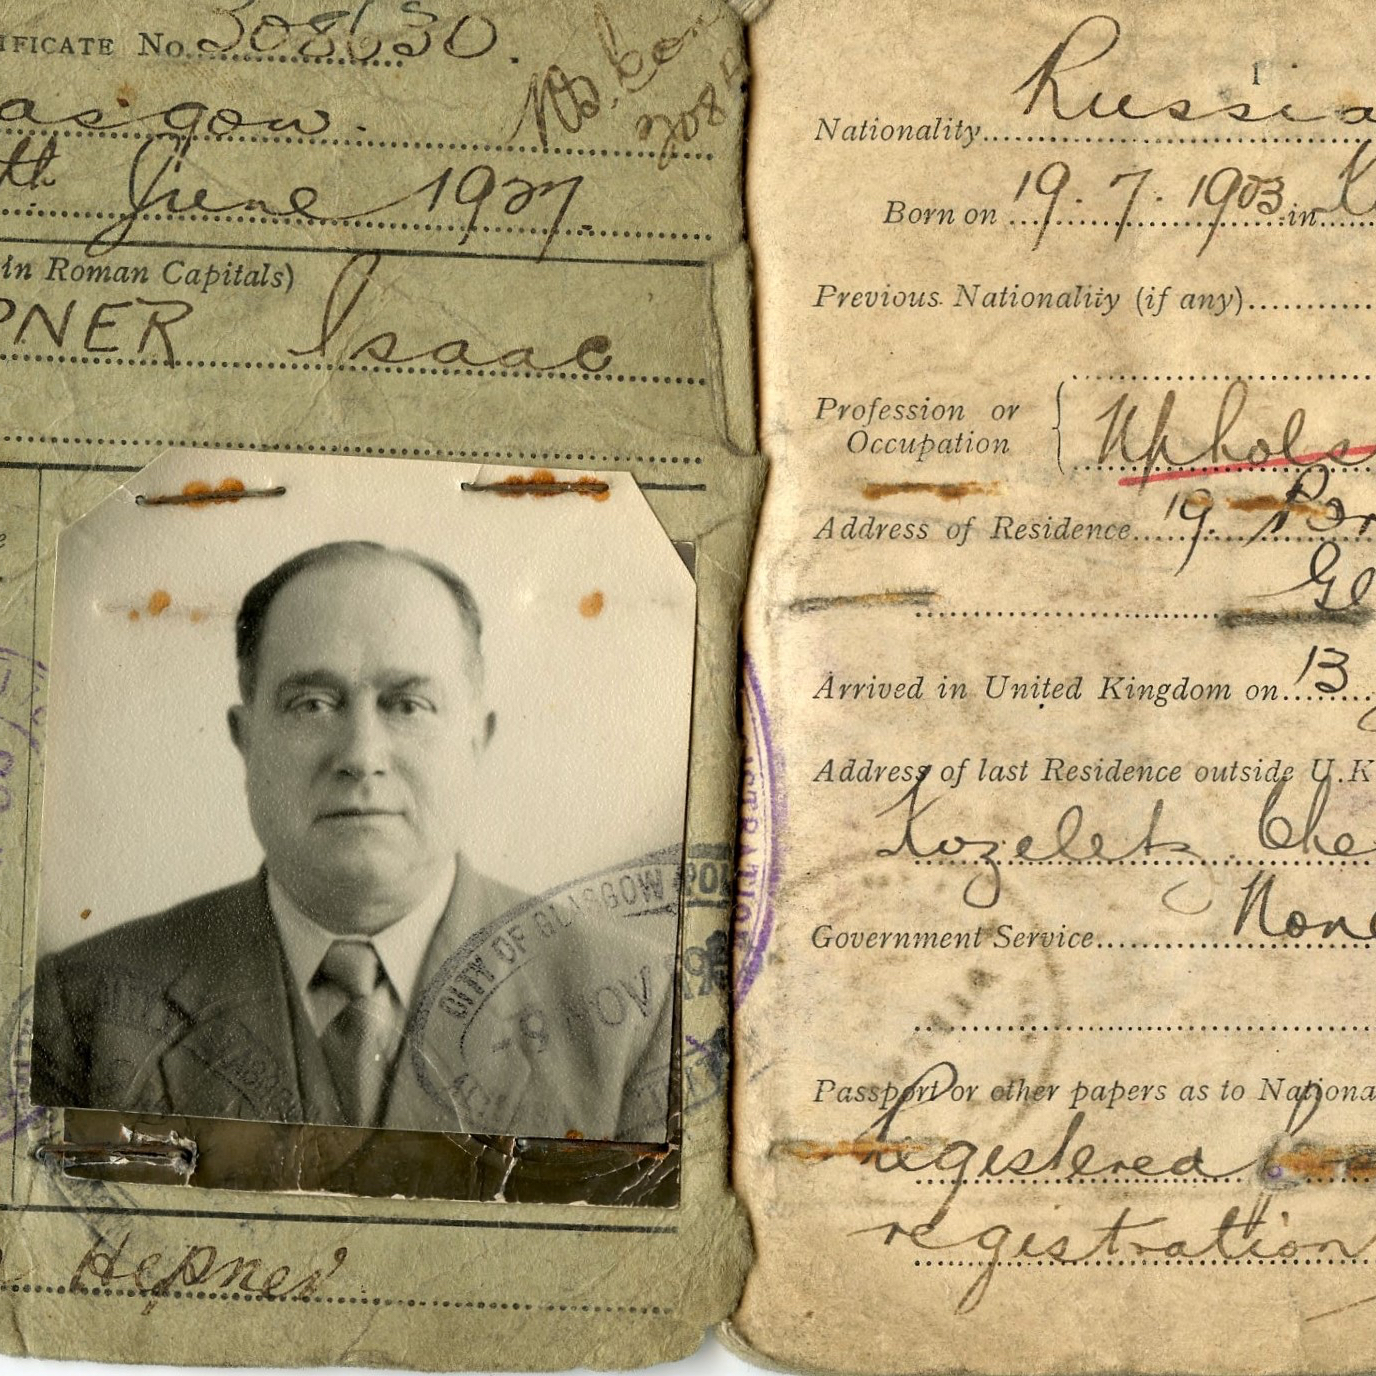 IFICATE No. 308630.
asgow.
th June 1927.
in Roman Capitals)
PNER Isaac
Hepner
CITY OF GLASGOW POL
9 NOV 19
1
Nationality Russia
Born on 19.7.1903 in K
Previous Nationality (if any)
Profession or
Occupation Uphols
Address of Residence 19.
Gl
Arrived in United Kingdom on 13
Address of last Residence outside U.K
Kozeletz Che
Government Service None
Passport or other papers as to Nationa
Registered
registration